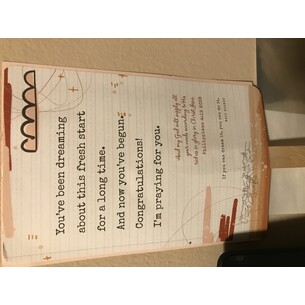 You've been dreaming
about this fresh start
for a long time.
And now you've begun.
Congratulations!
I'm praying for you.
And my God will supply all
your needs according to His
riches in glory in Christ Jesus.
Philippians 4:19
If you can dream it, you can do it.
Walt Disney